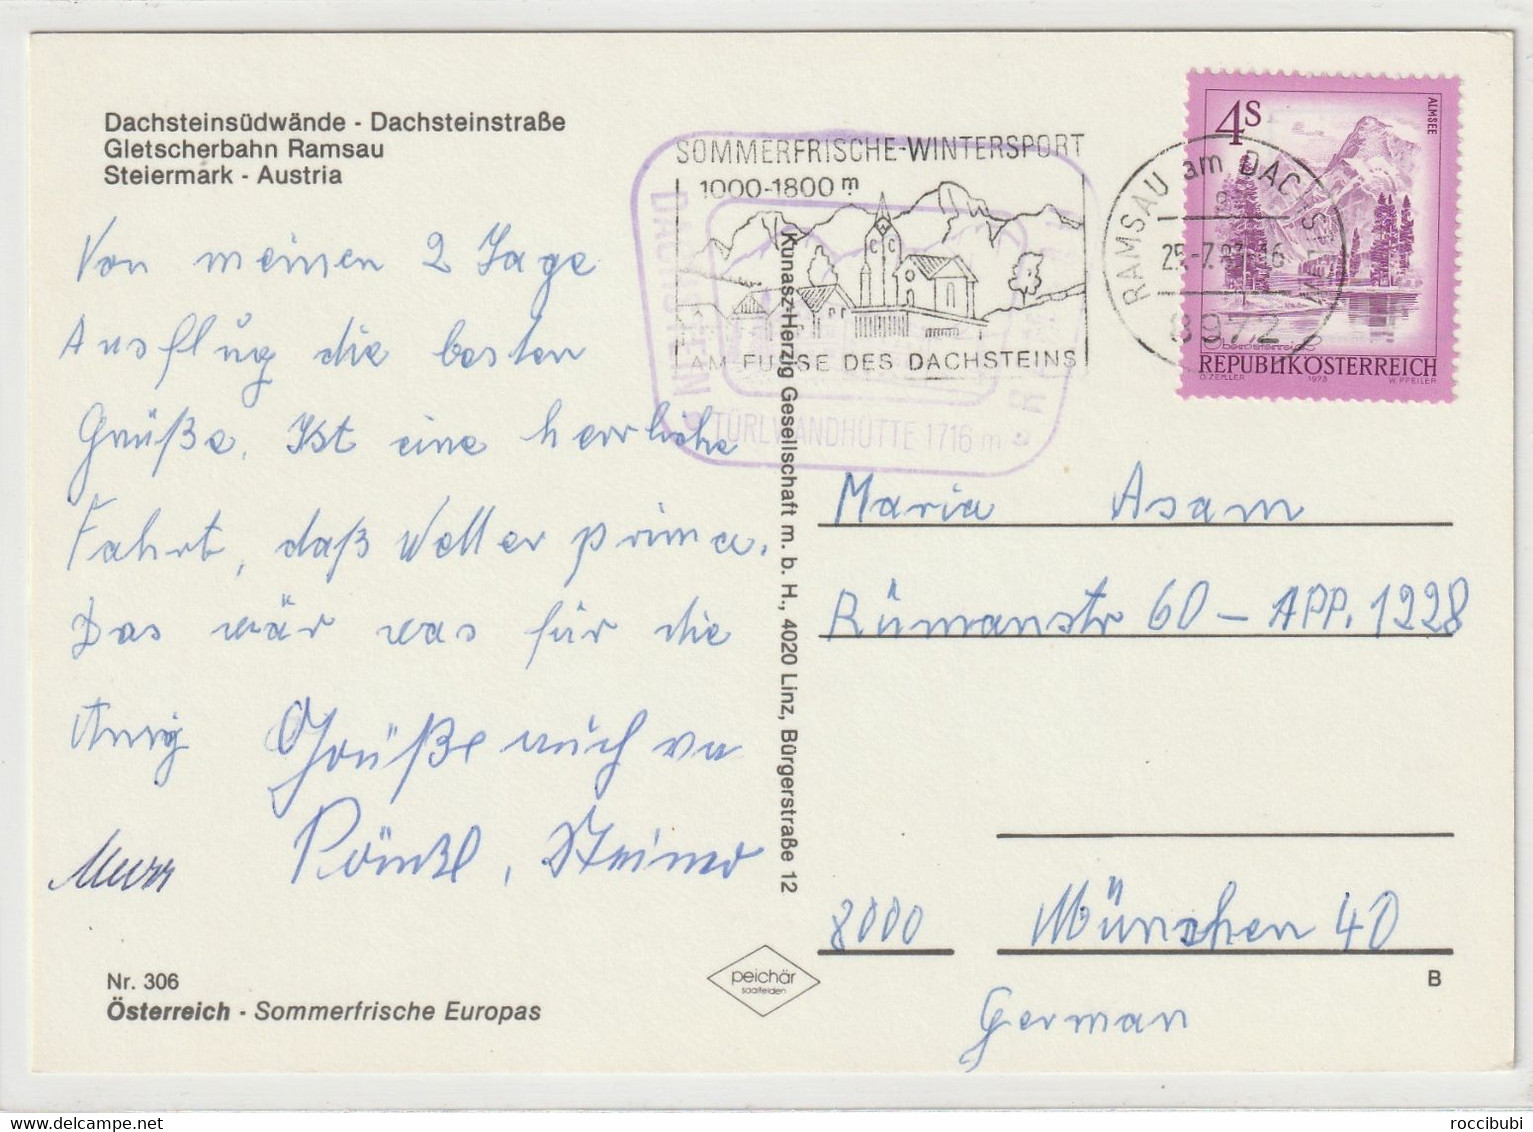 Dachsteinsüdwände - Dachsteinstraße
Gletscherbahn Ramsau
Steiermark - Austria
Von meinen 2 Tage
Ausflug die besten
Grüße. Ist eine herrliche
Fahrt, daß Wetter prima.
Das wär was für die
Grüße auch
Steiner
Nr. 306
Österreich - Sommerfrische Europas
Kunasz-Herzig Gesellschaft m. b. H., 4020 Linz, Bürgerstraße 12
peichär
saalfelden
SOMMERFRISCHE-WINTERSPORT
1000-1800 m
AM FUSSE DES DACHSTEINS
DACHSTEIN
TÜRLWANDHÜTTE 1716 m
RAMSAU am DACHSTEIN
8972
4S
ALMSEE
REPUBLIK ÖSTERREICH
O. ZEILLER 1973 W. PFEILER
Maria Asam
Rümanstr 60 - APP. 1228
8000 München 40
B
German
www.delcampe.net
roccibubi